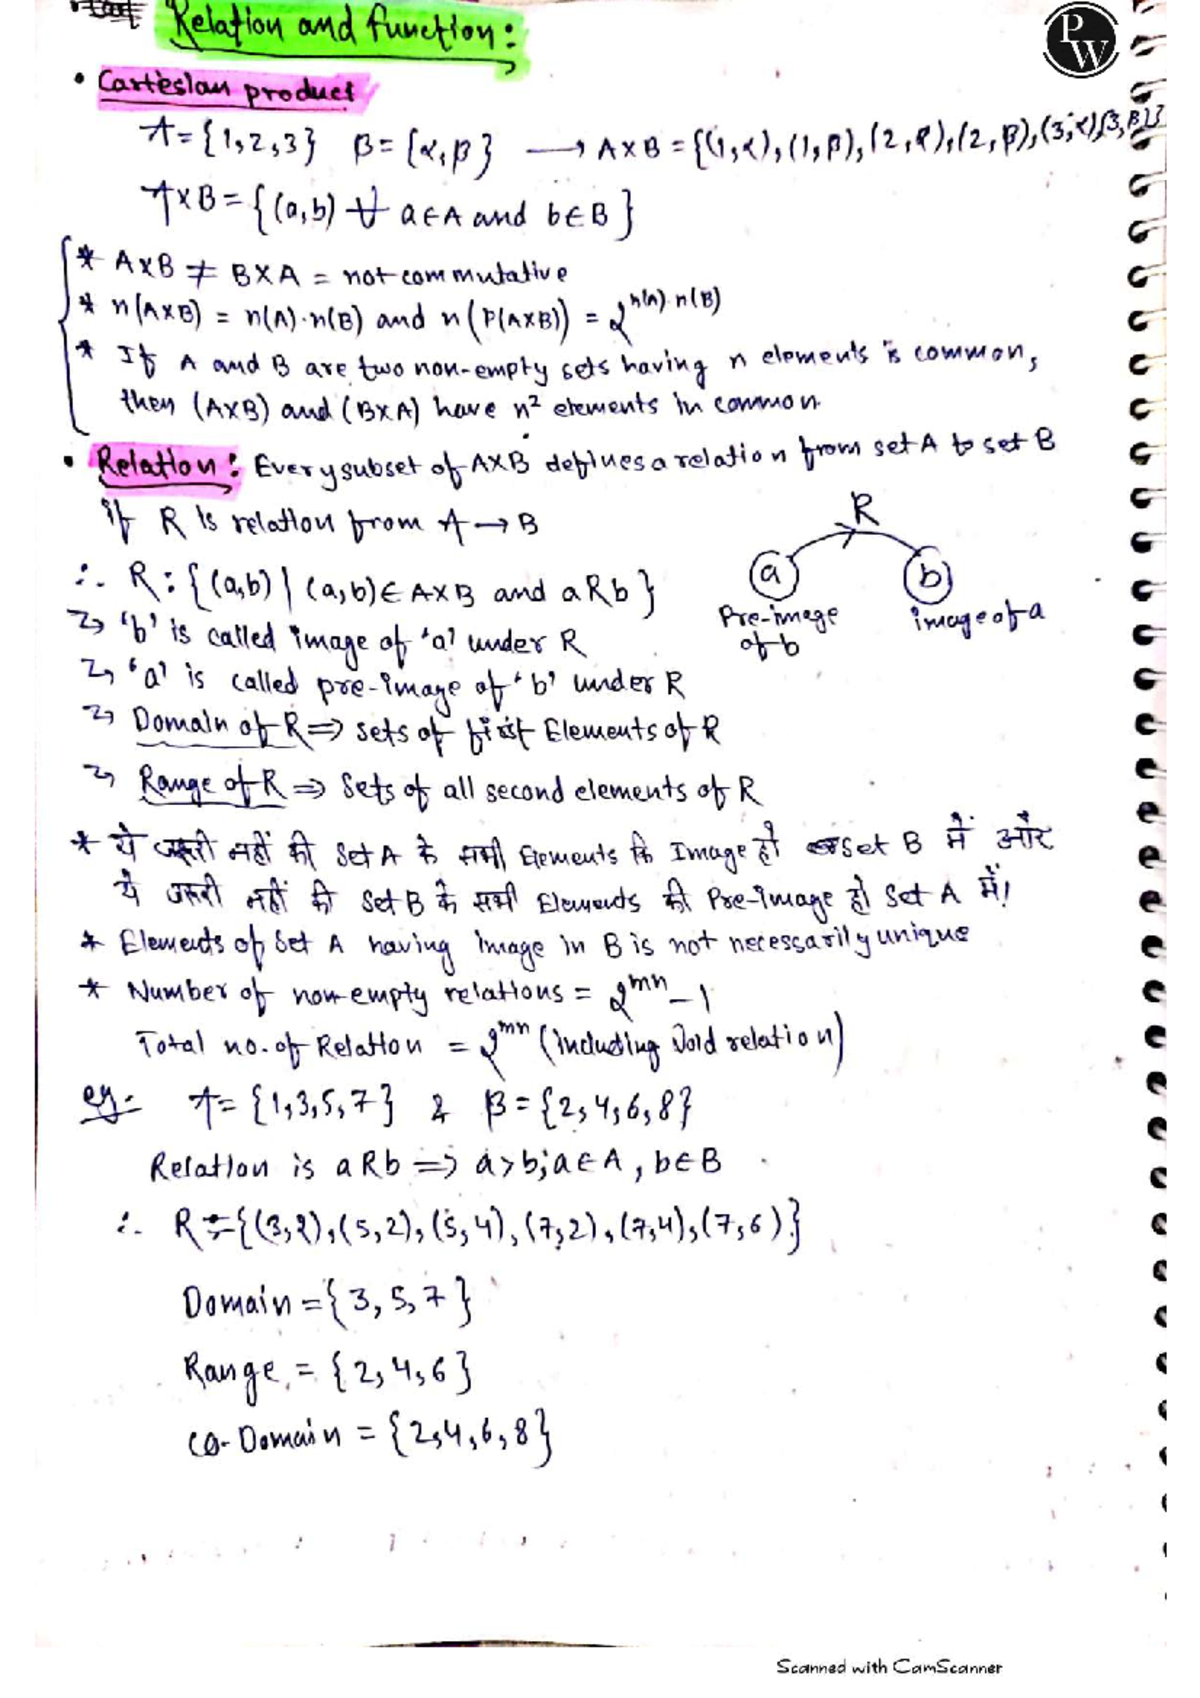 Relation and function:
PW
• Cartesian product
A = {1,2,3} B = {α,β} → A×B = {(1,α),(1,β),(2,α),(2,β),(3,α)(3,β)}
A×B = {(a,b) ∀ a∈A and b∈B}
* A×B ≠ B×A = not commutative
* n(A×B) = n(A)·n(B) and n(P(A×B)) = 2^{n(A)·n(B)}
* If A and B are two non-empty sets having n elements is common,
then (A×B) and (B×A) have n² elements in common.
• Relation: Every subset of A×B defines a relation from set A to set B
if R is relation from A → B
∴ R: {(a,b) | (a,b)∈ A×B and aRb}
R
a b
Pre-image of b
image of a
→ 'b' is called image of 'a' under R
→ 'a' is called pre-image of 'b' under R
→ Domain of R ⇒ sets of first Elements of R
→ Range of R ⇒ Sets of all second elements of R
* ये जरूरी नहीं की Set A के सभी Elements कि Image हो Set B में और
ये जरूरी नहीं की Set B के सभी Elements की Pre-image हो Set A में!
* Elements of Set A having image in B is not necessarily unique
* Number of non-empty relations = 2^{mn} - 1
Total no. of Relation = 2^{mn} (including void relation)
eg:- A = {1,3,5,7} & B = {2,4,6,8}
Relation is aRb ⇒ a>b; a∈A, b∈B
∴ R = {(3,2),(5,2),(5,4),(7,2),(7,4),(7,6)}
Domain = {3,5,7}
Range = {2,4,6}
co-Domain = {2,4,6,8}
Scanned with CamScanner